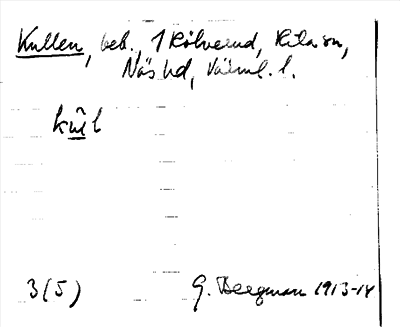 Kullen, beb., 1 Kölverud, Kila sn,
Näs hd, Värml. l.
kul
3(5) G. Bergman 1913-14